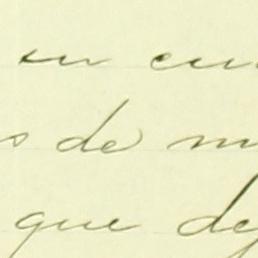 su cu
s de m
que de